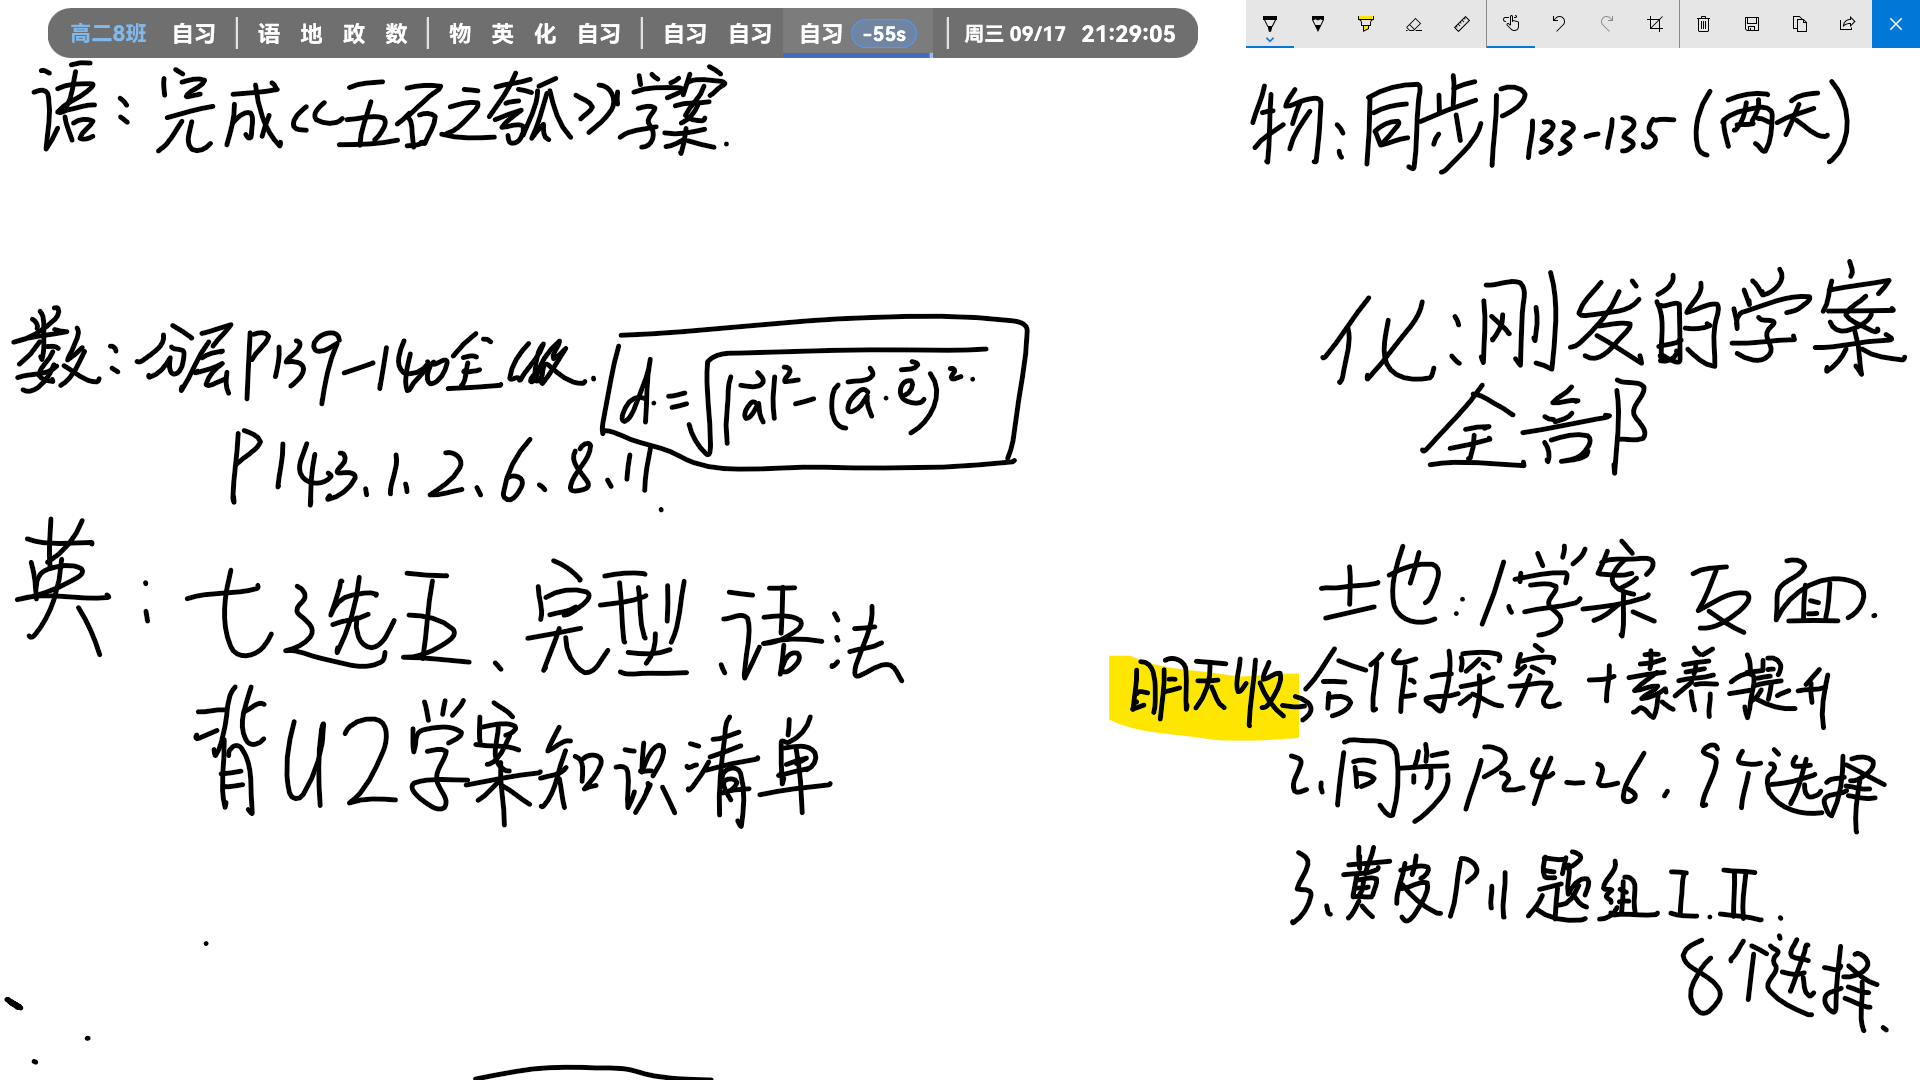 高二8班 自习 | 语 地 政 数 | 物 英 化 自习 | 自习 自习 自习 -55s | 周三 09/17 21:29:05
语：完成《五石之瓠》学案.
数：分层P139-140全做.
d=√|a⃗|²-(a⃗·e⃗)².
P143、1、2、6、8、11.
英：七选五、完型、语法
背U2学案知识清单
物：同步P133-135(两天)
化：刚发的学案
全部
地：1.学案反面.
明天收→合作探究+素养提升
2.同步P24-26.9个选择
3、黄皮P11题组I.II.
8个选择.